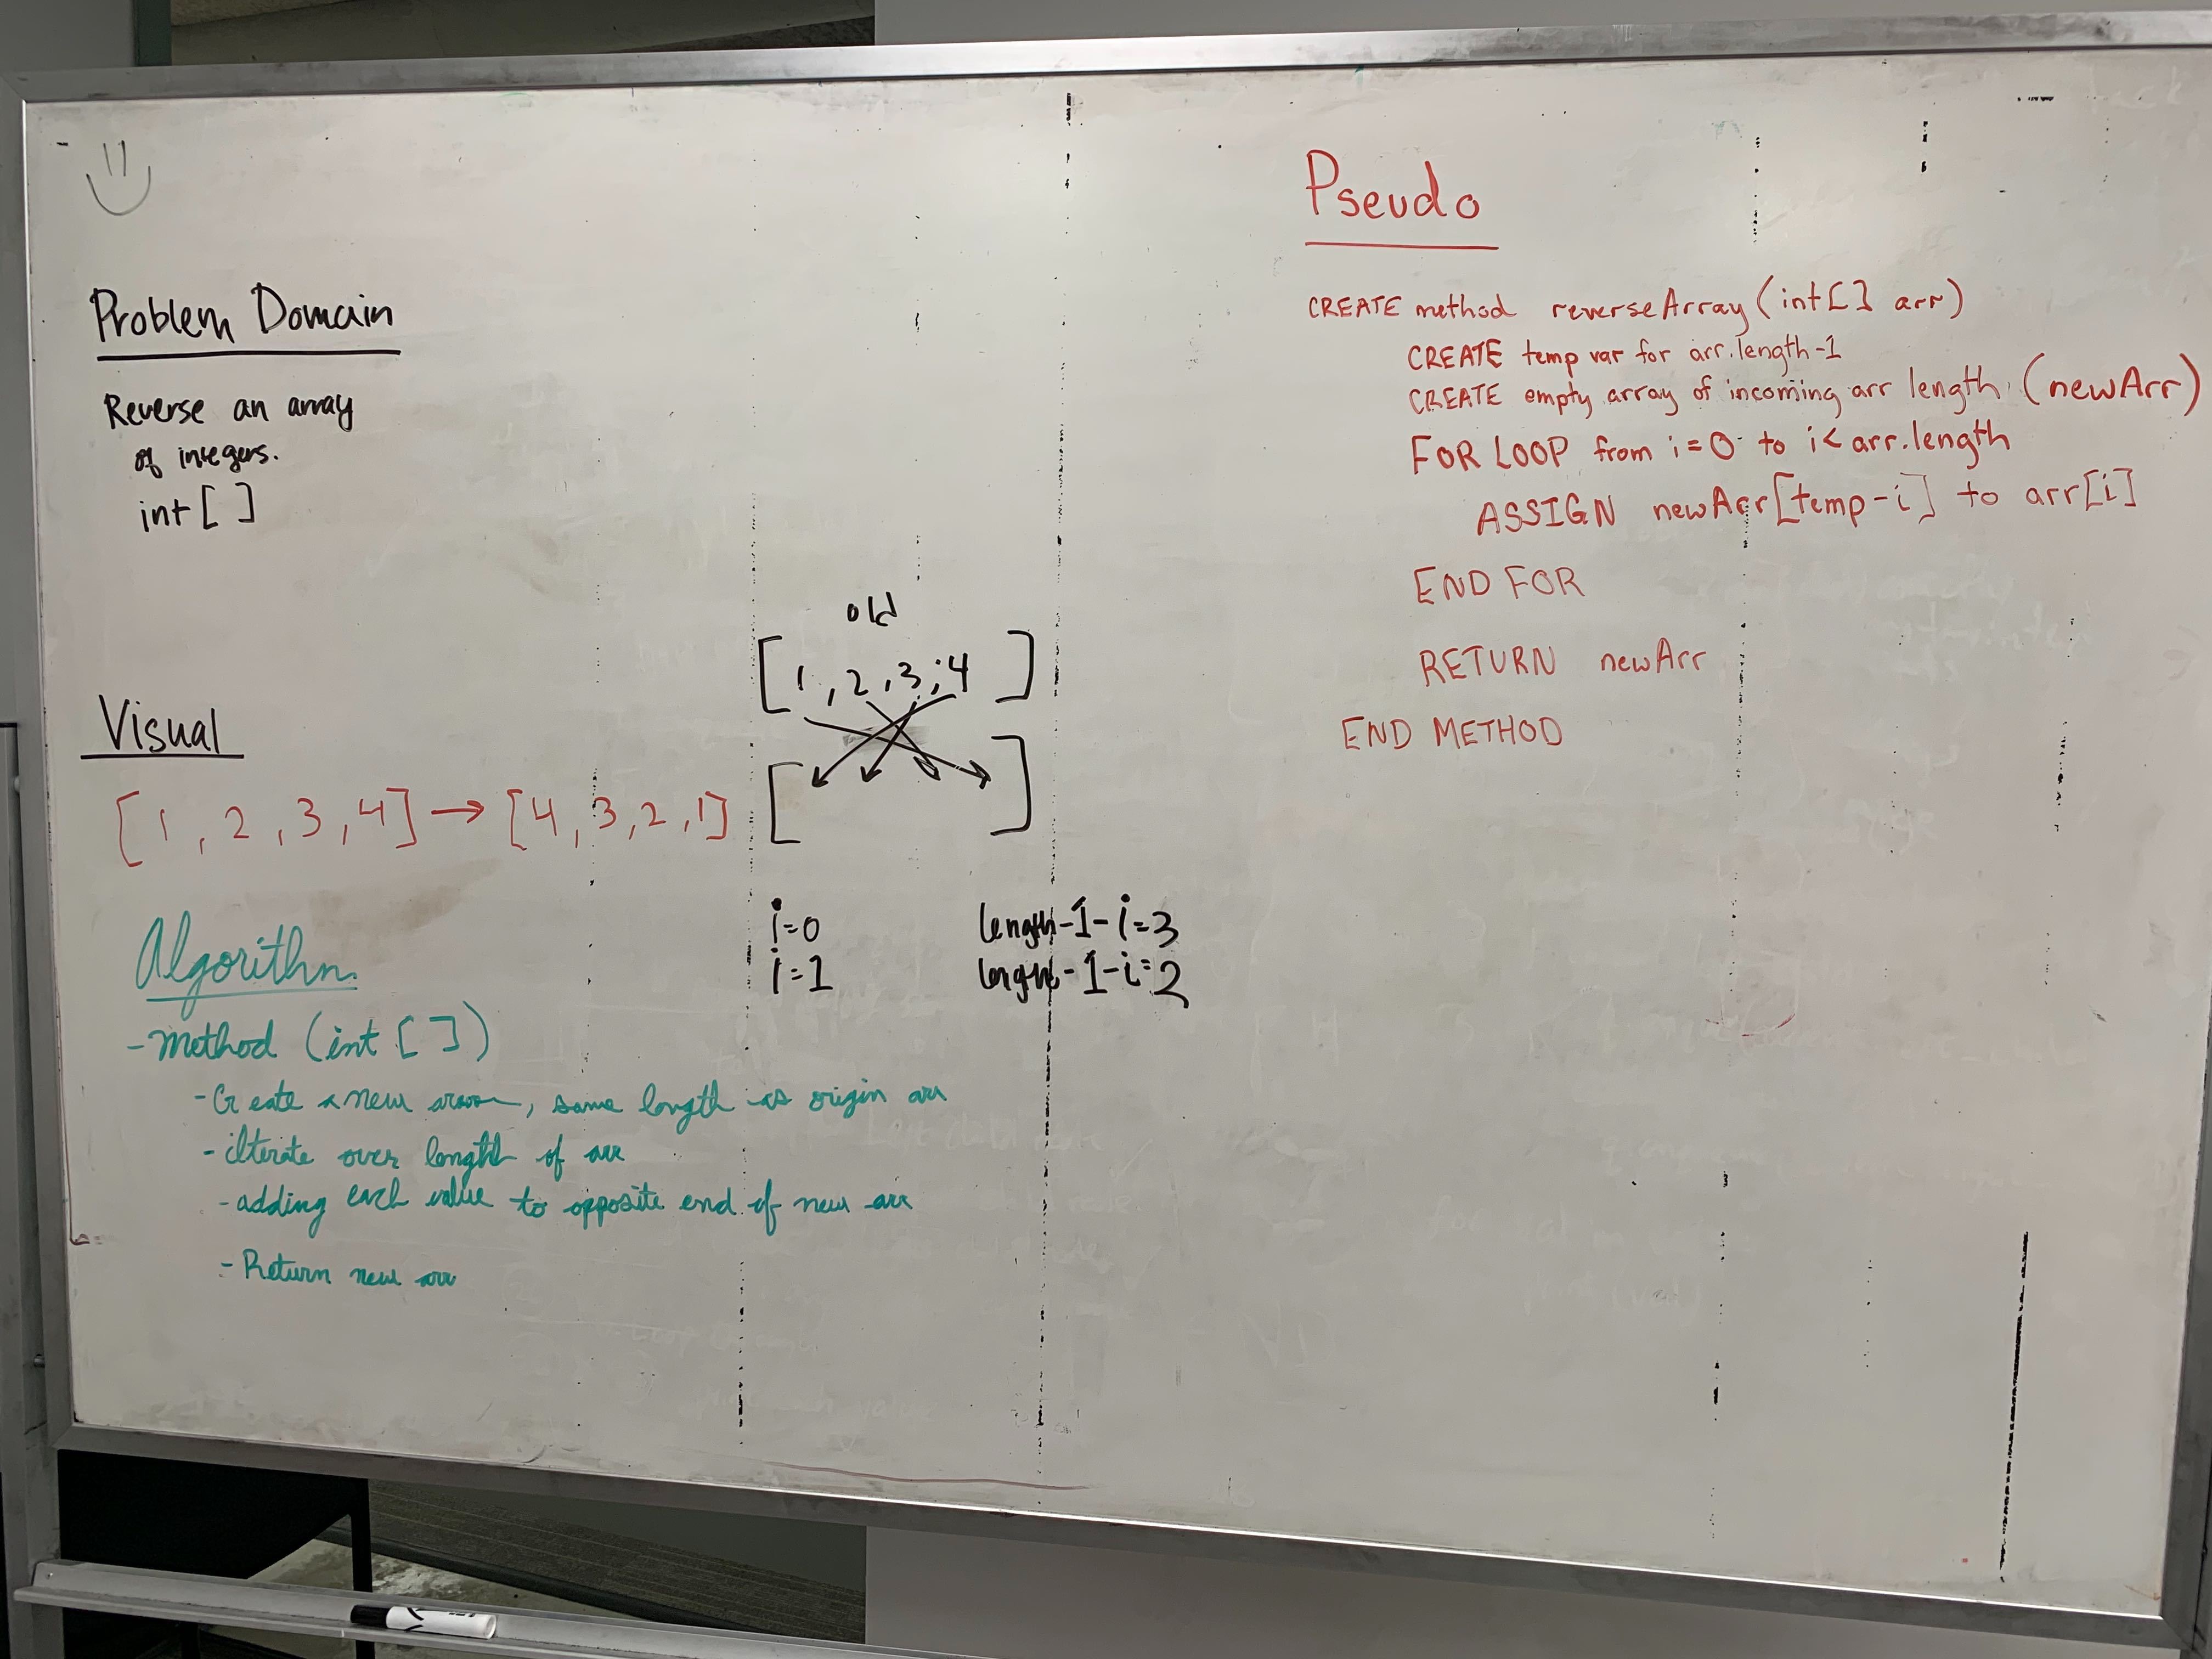 Problem Domain
Reverse an array
of integers.
int [ ]
Visual
[1, 2, 3, 4] → [4, 3, 2, 1]
old
[1, 2, 3, 4]
[ ]
i=0 length-1-i=3
i=1 length-1-i=2
Algorithm
- Method (int [ ])
- Create a new, same length as origin arr
- iterate over length of arr
- adding each value to opposite end of new arr
- Return new arr
Pseudo
CREATE method reverseArray (int[] arr)
CREATE temp var for arr.length-1
CREATE empty array of incoming arr length (newArr)
FOR LOOP from i=0 to i< arr.length
ASSIGN newArr[temp-i] to arr[i]
END FOR
RETURN newArr
END METHOD